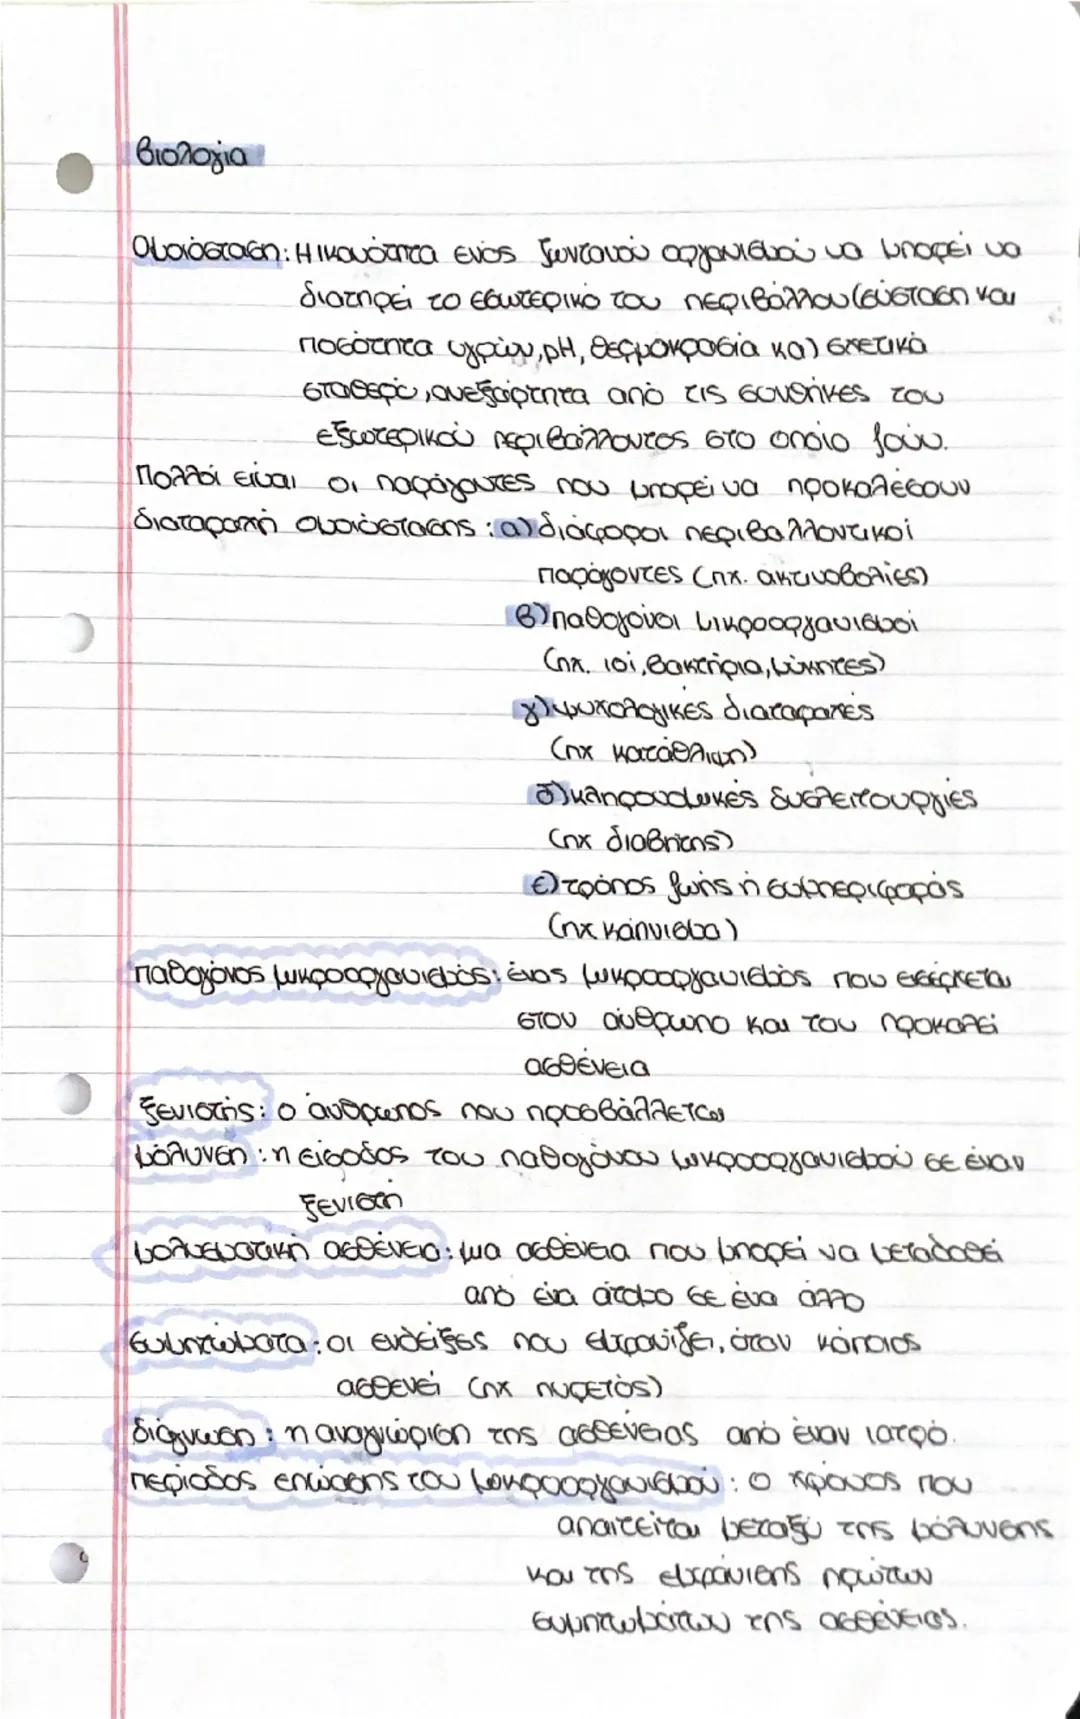 βιολογια
Ομοιόσταση: Η ικανότητα ενός ζωντανού οργανισμού να μπορεί να
διατηρεί το εσωτερικό του περιβάλλον (σύσταση και
ποσότητα υγρών, pH, θερμοκρασία κα) σχετικά
σταθερό, ανεξάρτητα από τις συνθήκες του
εξωτερικού περιβάλλοντος στο οποίο ζουν.
Πολλοί είναι οι παράγοντες που μπορεί να προκαλέσουν
διαταραχή ομοιόστασης: α) διάφοροι περιβαλλοντικοί
παράγοντες (πχ. ακτινοβολίες)
β) παθογόνοι μικροοργανισμοί
(πχ. ιοί, βακτήρια, μύκητες)
γ) ψυχολογικές διαταραχές
(πχ κατάθλιψη)
δ) κληρονομικές δυσλειτουργίες
(πχ διαβήτης)
ε) τρόπος ζωής ή συμπεριφοράς
(πχ κάπνισμα)
παθογόνος μικροοργανισμός: ένας μικροοργανισμός που εισέρχεται
στον άνθρωπο και του προκαλεί
ασθένεια
ξενιστής: ο άνθρωπος που προσβάλλεται
μόλυνση: η είσοδος του παθογόνου μικροοργανισμού σε έναν
ξενιστή
μολυσματική ασθένεια: μια ασθένεια που μπορεί να μεταδοθεί
από ένα άτομο σε ένα άλλο
συμπτώματα: οι ενδείξεις που εμφανίζει, όταν κάποιος
ασθενεί (πχ πυρετός)
διάγνωση: η αναγνώριση της ασθένειας από έναν ιατρό.
περίοδος επώασης του μικροοργανισμού: ο χρόνος που
απαιτείται μεταξύ της μόλυνσης
και της εμφάνισης πρώτων
συμπτωμάτων της ασθένειας.